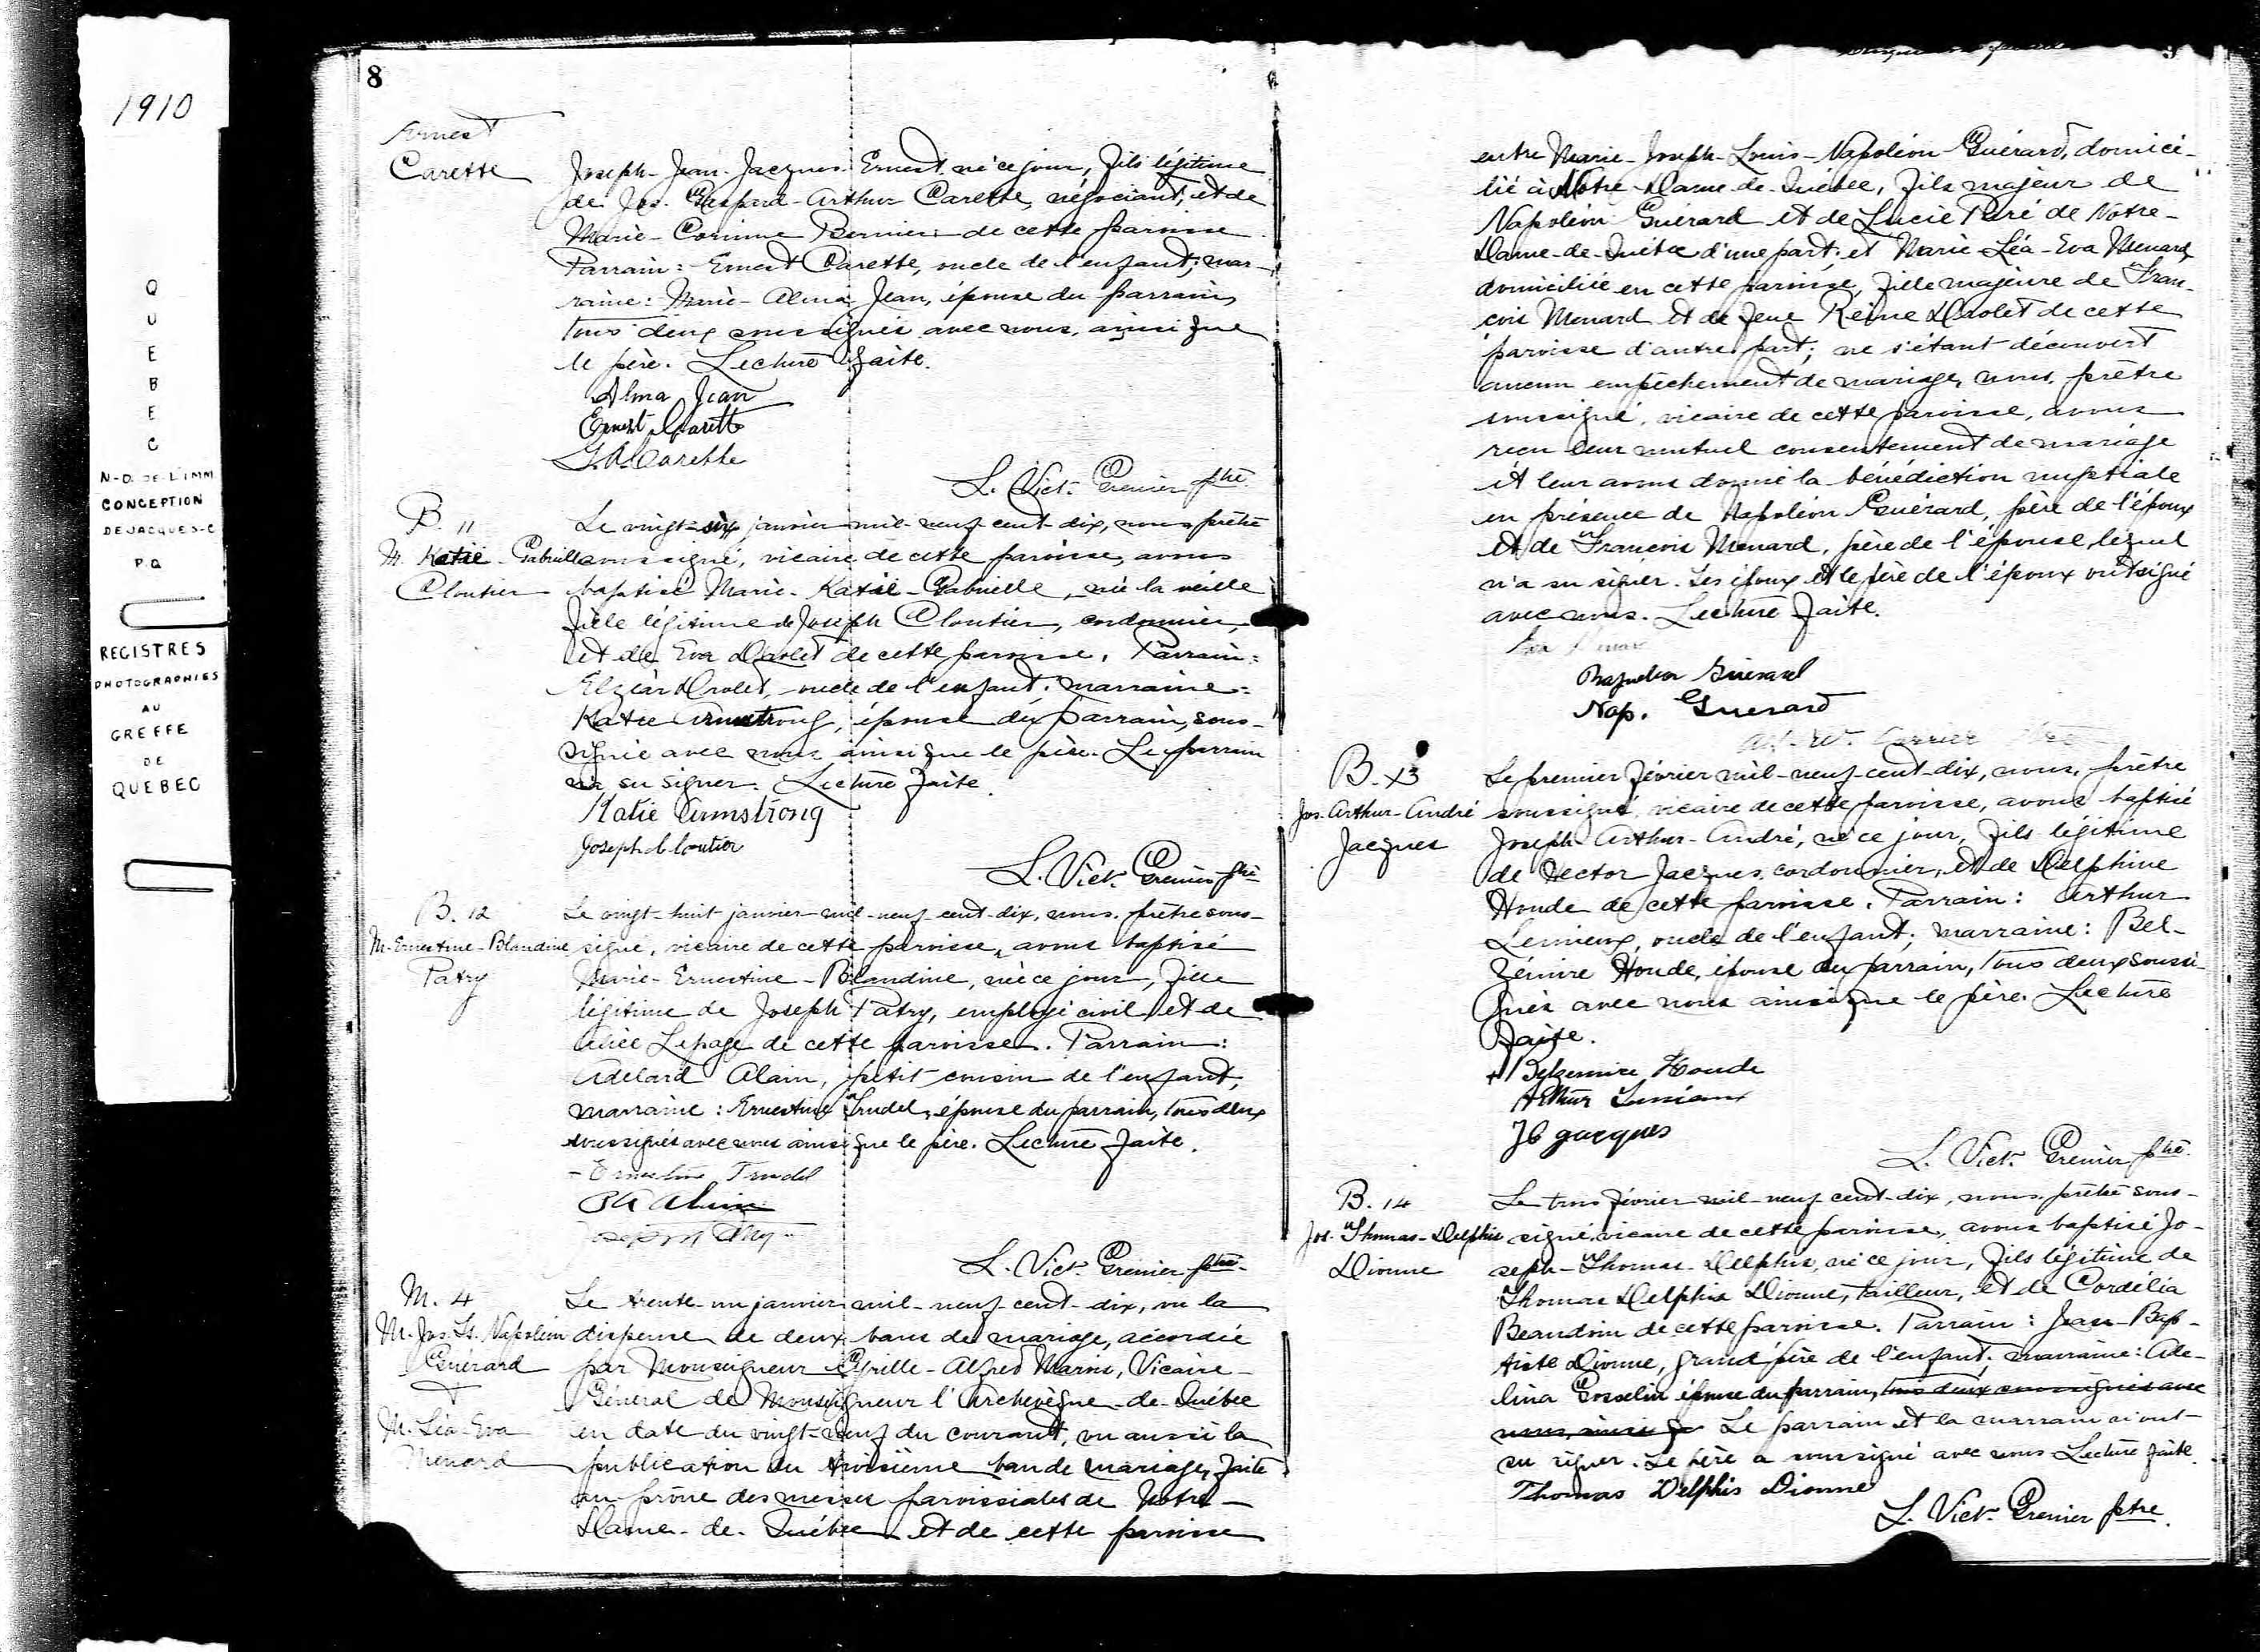 1910
QUEBEC
N-D. DE L'IMM
CONCEPTION
DE JACQUES-C
P.Q
REGISTRES
PHOTOGRAPHIES
AU
GREFFE
DE
QUEBEC
8
Ernest
Carette
Joseph-Jean-Jacques-Ernest, né ce jour, fils légitime
de Jos. Gaspard-Arthur Carette, négociant, et de
Marie-Corinne Bernier de cette paroisse
Parrain: Ernest Carette, oncle de l'enfant; mar-
raine: Marie-Alma Jean, épouse du parrain,
tous deux soussignés avec nous, ainsi que
le père. Lecture faite.
Alma Jean
Ernest Carette
G.A. Carette
L. Vict. Grenier ptre.
B. 11
M. Katie-Gabrielle
Cloutier
Le vingt-six janvier mil-neuf-cent-dix, nous prêtre
soussigné, vicaire de cette paroisse, avons
baptisé Marie-Katie-Gabrielle, née la veille
fille légitime de Joseph Cloutier, cordonnier,
et de Eva Drolet de cette paroisse. Parrain:
Elzéar Drolet, oncle de l'enfant; marraine:
Katie Armstrong, épouse du parrain, sous-
signée avec nous ainsi que le père. Le parrain
n'a su signer. Lecture faite.
Katie Armstrong
Joseph Cloutier
L. Vict. Grenier ptre
B. 12
M.-Ernestine-Blandine
Patry
Le vingt-huit janvier mil-neuf-cent-dix, nous prêtre sous-
signé, vicaire de cette paroisse, avons baptisé
Marie-Ernestine-Blandine, née ce jour, fille
légitime de Joseph Patry, employé civil et de
Alice Lepage de cette paroisse. Parrain:
Adélard Alain, petit cousin de l'enfant;
marraine: Ernestine Trudel, épouse du parrain, tous deux
soussignés avec nous ainsi que le père. Lecture faite.
Ernestine Trudel
Alain
L. Vict. Grenier ptre.
M. 4
M. Jos. Ls. Napoléon
Guérard
&
M. Léa-Eva
Menard
Le trente-un janvier mil-neuf-cent-dix, vu la
dispense de deux bans de mariage, accordée
par Monseigneur Cyrille-Alfred Marois, Vicaire-
Général de Monseigneur l'Archevêque-de-Québec
en date du vingt-neuf du courant, vu aussi la
publication du troisième ban de mariage, faite
au prône des messes paroissiales de Notre-
Dame-de-Québec et de cette paroisse
entre Marie-Joseph-Louis-Napoléon Guérard, domici-
lié à Notre-Dame-de-Québec, fils majeur de
Napoléon Guérard et de Lucie Paré de Notre-
Dame-de-Québec d'une part; et Marie-Léa-Eva Menard,
domiciliée en cette paroisse, fille majeure de Fran-
çois Menard et de feue Reine Drolet de cette
paroisse d'autre part; ne s'étant découvert
aucun empêchement de mariage, nous, prêtre
soussigné, vicaire de cette paroisse, avons
reçu leur mutuel consentement de mariage
et leur avons donné la bénédiction nuptiale
en présence de Napoléon Guérard, père de l'époux
et de François Menard, père de l'épouse, lequel
n'a su signer. Les époux et le père de l'époux ont signé
avec nous. Lecture faite.
Eva Menard
Napoléon Guérard
Nap. Guerard
B. 13
Jos. Arthur-André
Jacques
Le premier février mil-neuf-cent-dix, nous, prêtre
soussigné, vicaire de cette paroisse, avons baptisé
Joseph-Arthur-André, né ce jour, fils légitime
de Hector Jacques, cordonnier, et de Delphine
Houde de cette paroisse. Parrain: Arthur
Lemieux, oncle de l'enfant; marraine: Bel-
zémire Houde, épouse du parrain, tous deux soussi-
gnés avec nous ainsi que le père. Lecture
faite.
Belzemire Houde
Arthur Lemieux
H Jacques
L. Vict. Grenier ptre.
B. 14
Jos. Thomas-Delphis
Dionne
Le trois février mil-neuf-cent-dix, nous prêtre sous-
signé, vicaire de cette paroisse, avons baptisé Jo-
seph-Thomas-Delphis, né ce jour, fils légitime de
Thomas Delphis Dionne, tailleur, et de Cordélia
Beaudoin de cette paroisse. Parrain: Jean-Bap-
tiste Dionne, grand'père de l'enfant. marraine: Ade-
lina Gosselin épouse du parrain, tous deux soussignés avec
nous, ainsi que Le parrain et la marraine n'ont
su signer. Le père a soussigné avec nous Lecture faite.
Thomas Delphis Dionne
L. Vict. Grenier ptre.